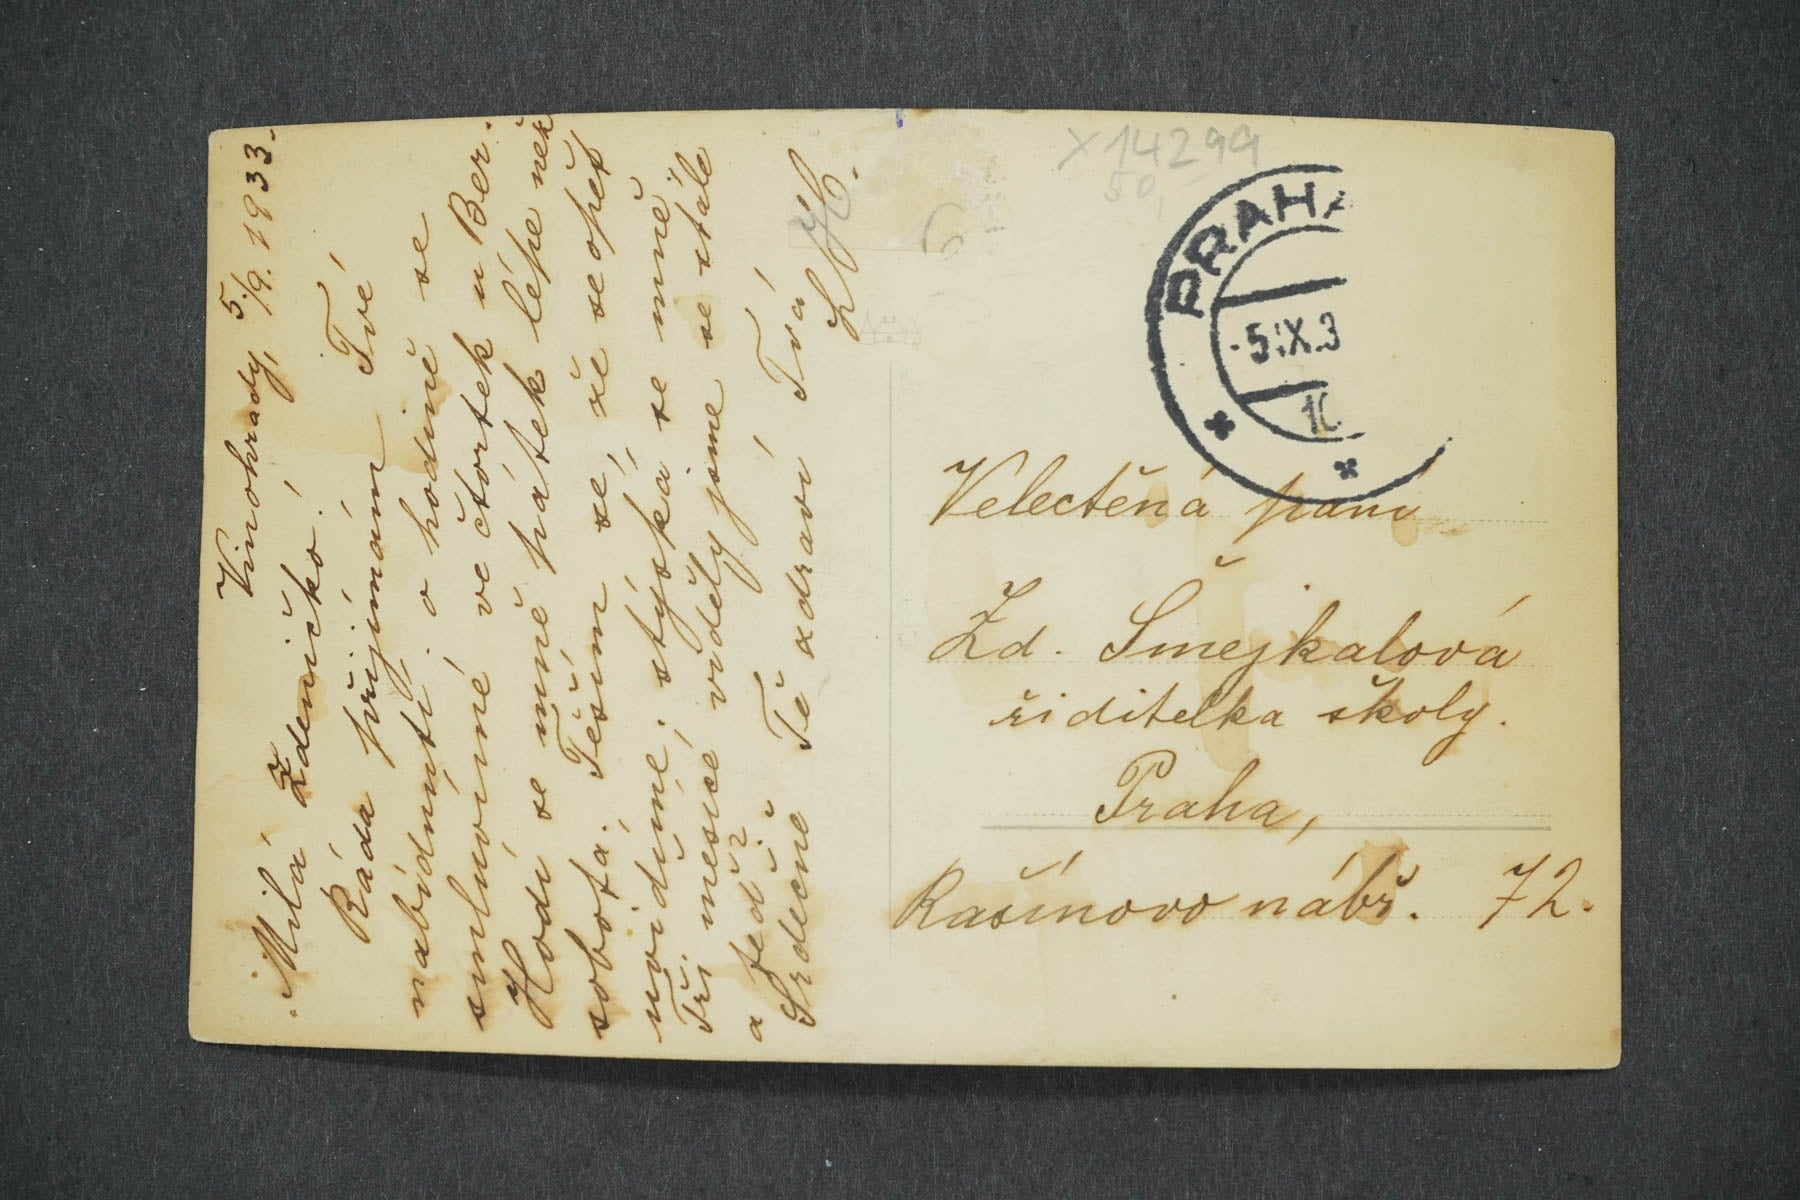 Vinohrady, 5./9. 1933.
Milá Zdeničko!
Ráda přijímám Tvé
nabídnutí o hodině se
smluvíme ve čtvrtek u Ber.
Hodí se mně pátek lépe než
sobota. Těším se, že se opět
uvidíme; stýská se mně.
Tři měsíce viděly jsme se stále
a teď?
Srdečně Tě zdraví Tvá
X14299
50,
6
PRAHA
-5.IX.3
Velectěná paní
Zd. Šmejkalová
řiditelka školy.
Praha,
Rašínovo nábř. 72.